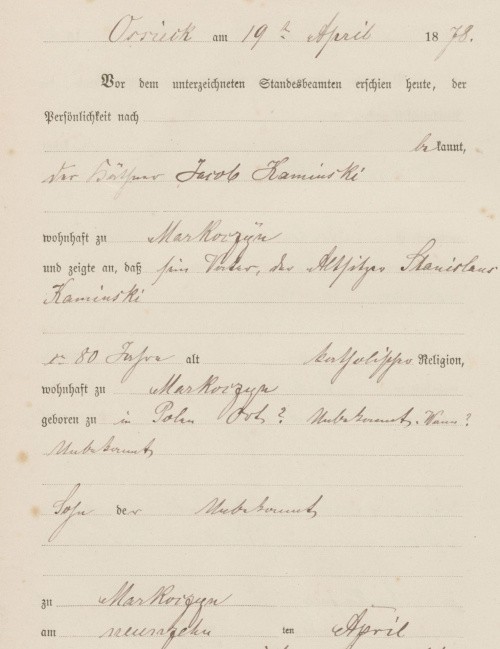 Ossieck am 19ᵗ April 1878.
Vor dem unterzeichneten Standesbeamten erschien heute, der
Persönlichkeit nach
bekannt,
der Käthner Jacob Kaminski
wohnhaft zu Markoczyn
und zeigte an, daß sein Vater, der Altsitzer Stanislaus
Kaminski
80 Jahre alt katholischer Religion,
wohnhaft zu Markoczyn
geboren zu in Polen Ort? Unbekannt. Wann?
Unbekannt
Sohn der Unbekannt
zu Markoczyn
am neunzehn ten April